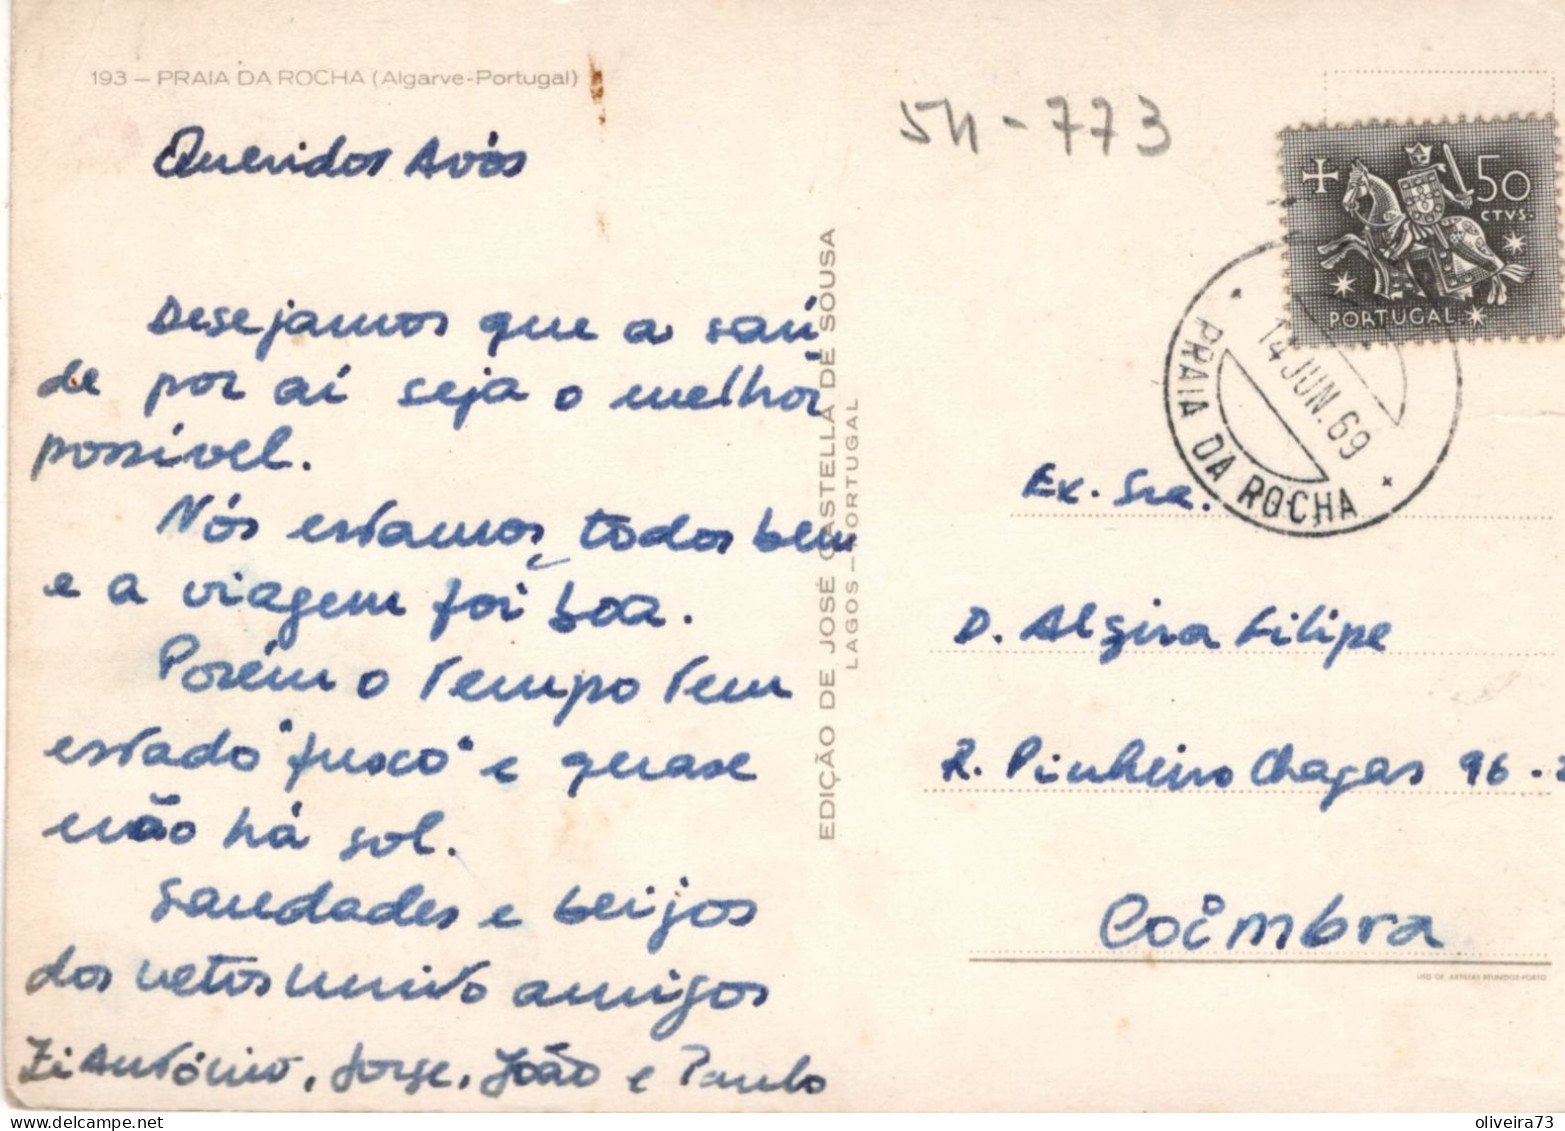 193 – PRAIA DA ROCHA (Algarve-Portugal)
Queridos Avós
Desejamos que a saú
de por aí seja o melhor
possível.
Nós estamos todos bem
e a viagem foi boa.
Porém o tempo tem
estado "fusco" e quase
não há sol.
Saudades e beijos
dos netos muito amigos
Zi António, Jorge, João e Paulo
EDIÇÃO DE JOSÉ CASTELLA DE SOUSA
LAGOS – PORTUGAL
511-773
50
CTVS.
PORTUGAL
14 JUN. 69
PRAIA DA ROCHA
Ex. Sra.
D. Alzira Filipe
R. Pinheiro Chagas 96 -
Coimbra
oliveira73